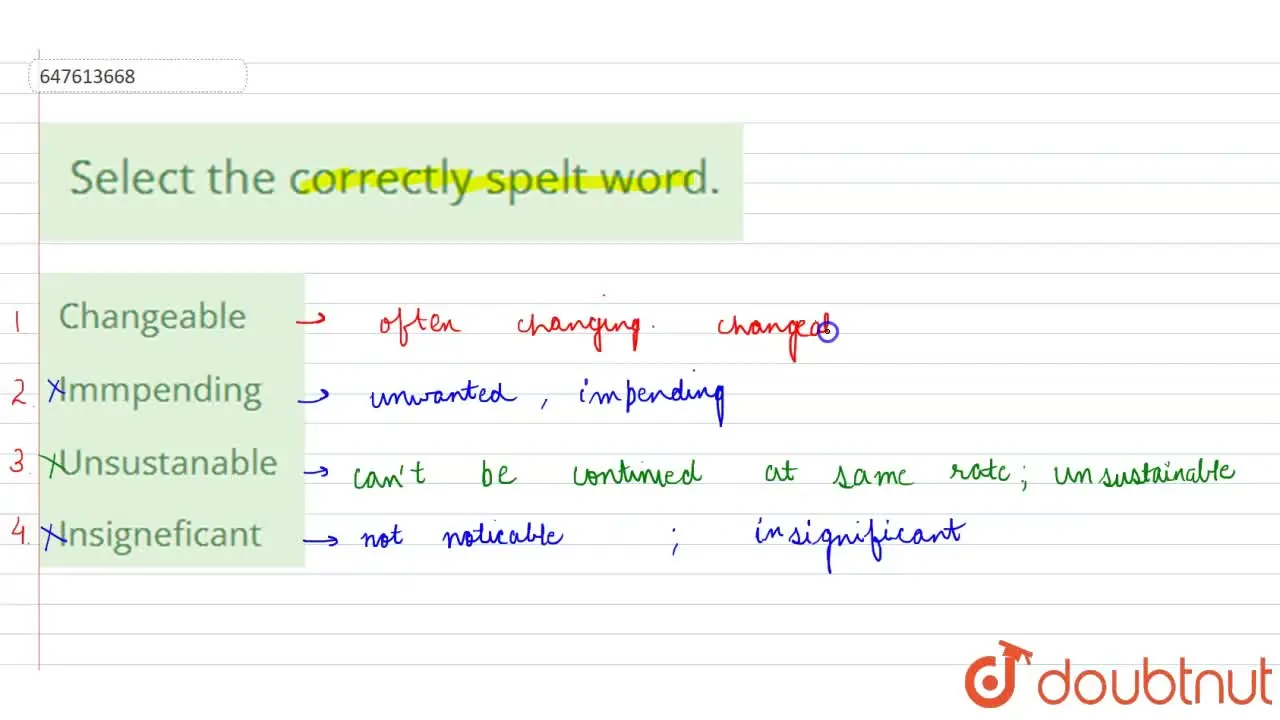 647613668
Select the correctly spelt word.
1 Changeable → often changing. changeab
2. Immpending → unwanted, impending
3. Unsustanable → can't be continued at same rate; unsustainable
4. Insigneficant → not noticable ; insignificant
doubtnut